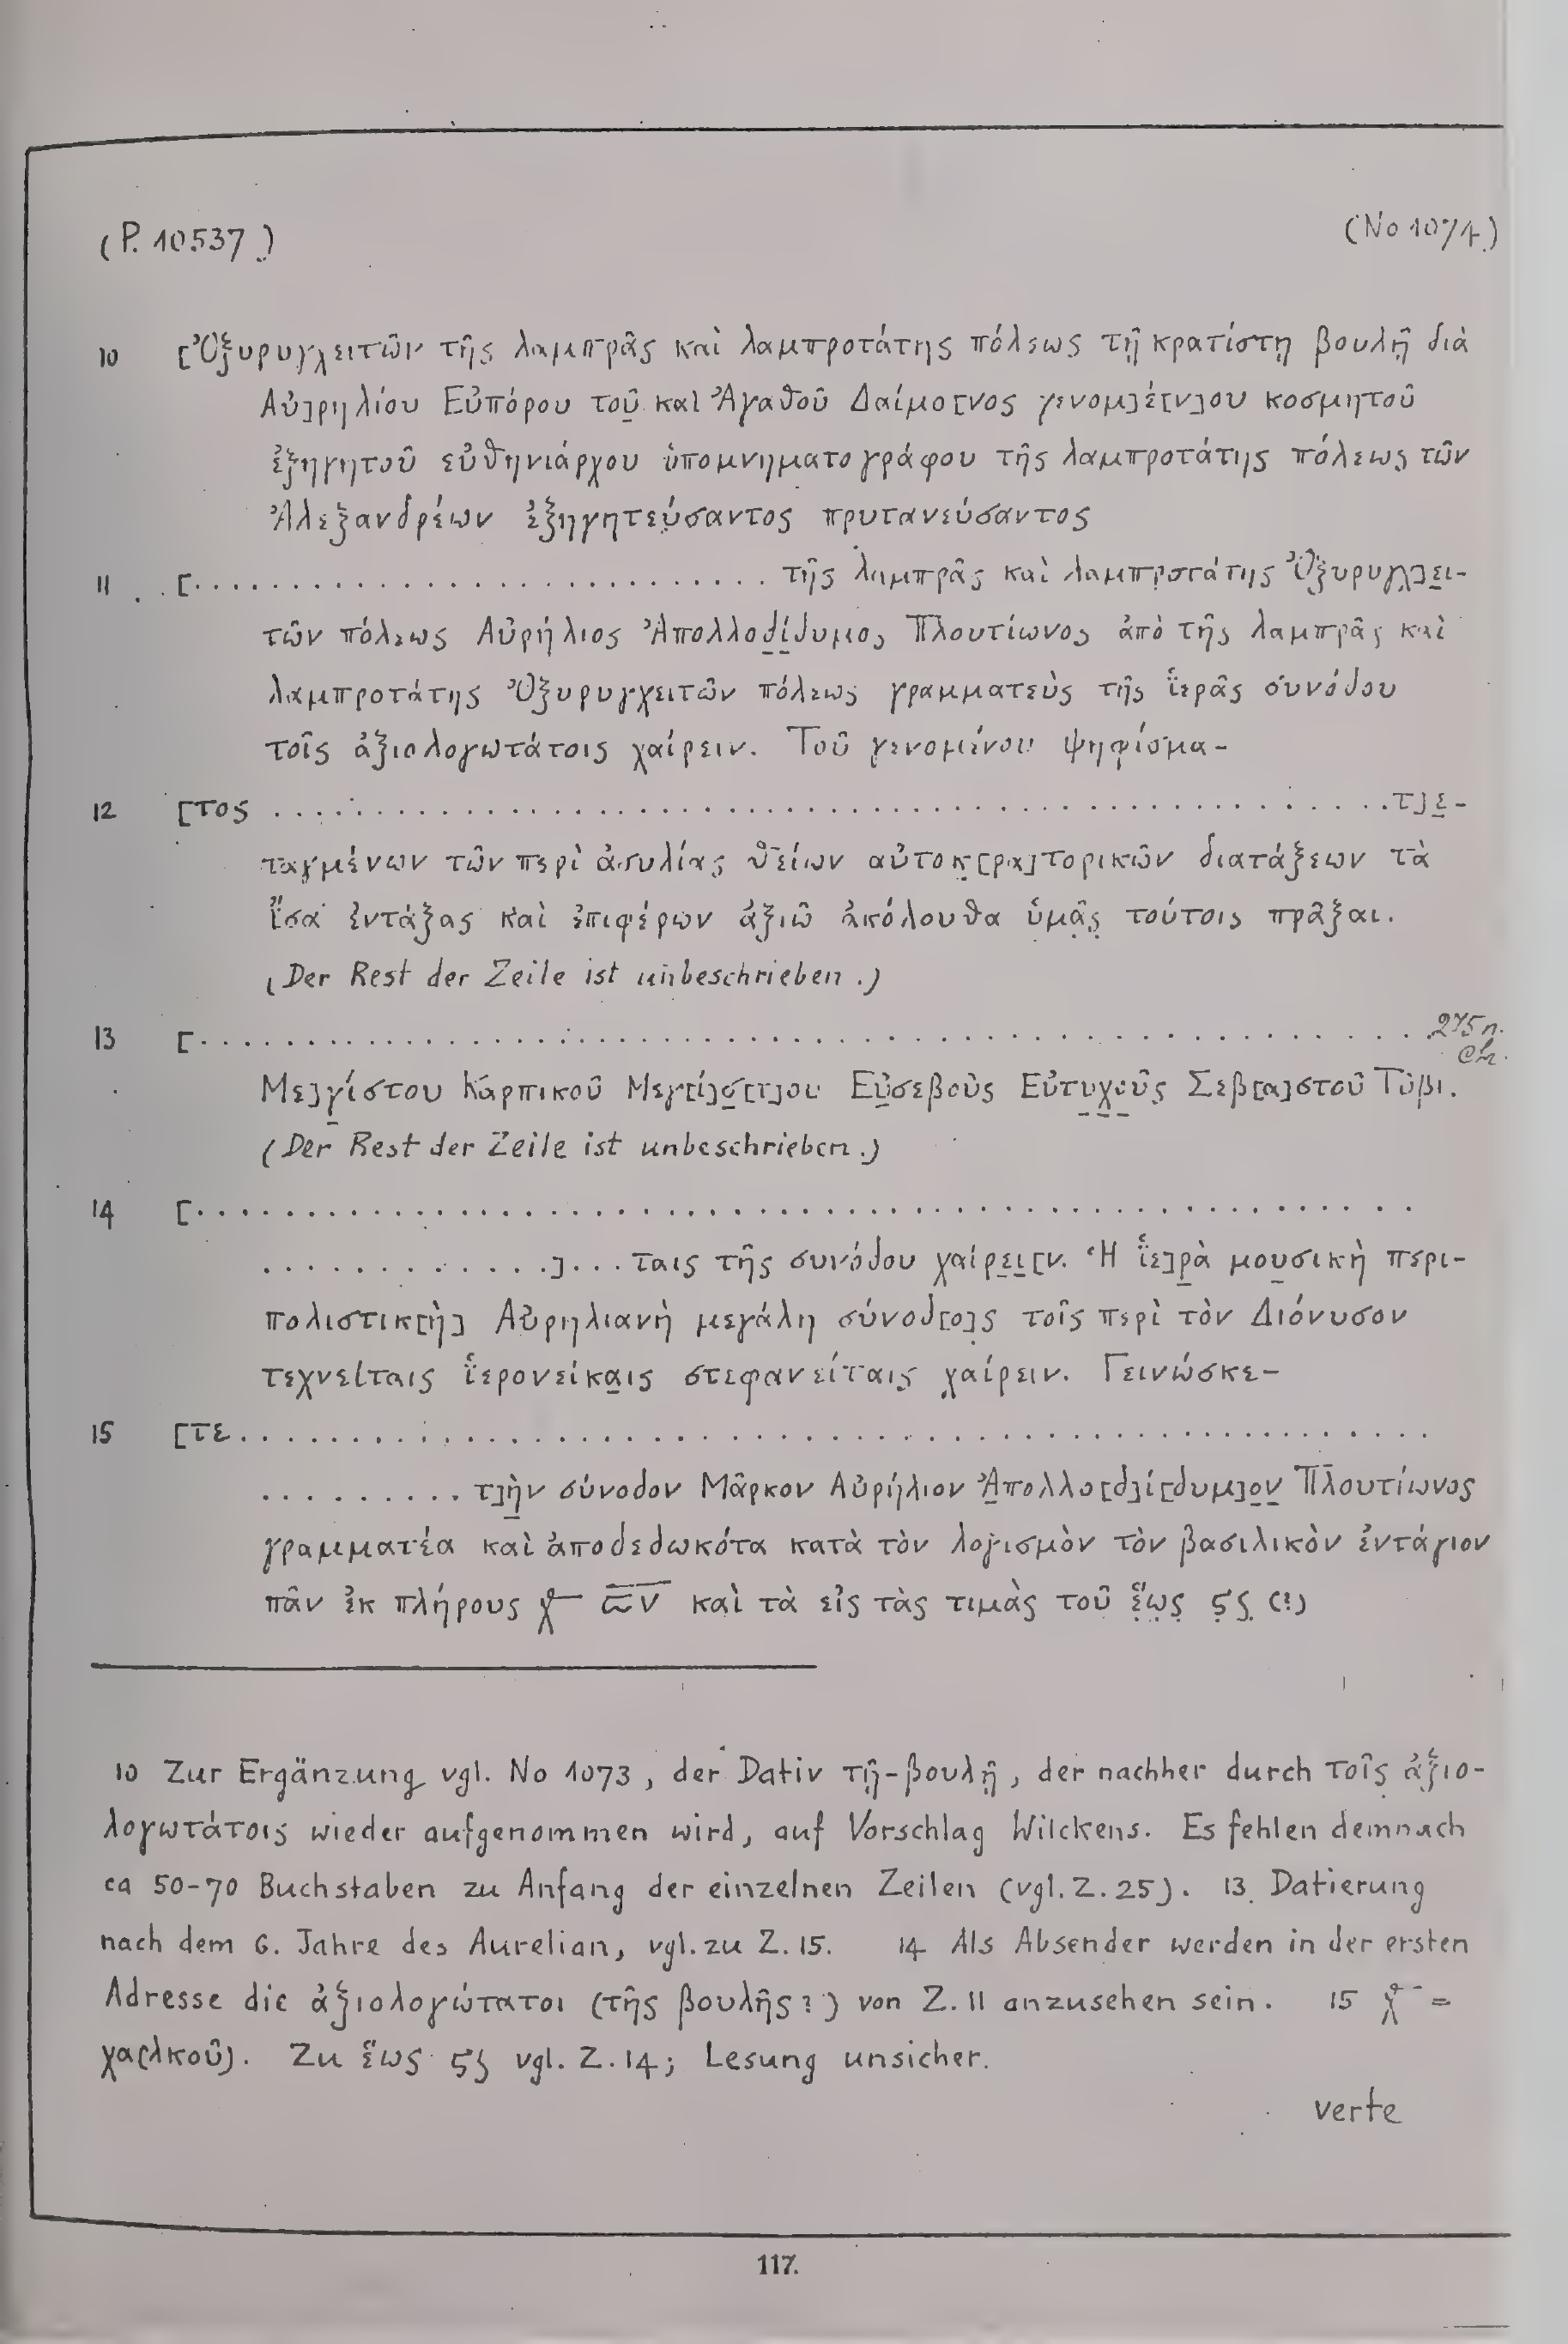 (P. 10537) (No 1074.)
10 [Ὀξυρυγχειτῶν τῆς λαμπρᾶς καὶ λαμπροτάτης πόλεως τῇ κρατίστῃ βουλῇ διὰ
Αὐ]ρηλίου Εὐπόρου τοῦ̣ καὶ Ἀγαθοῦ Δαίμο[νος γενομ]έ[ν]ου κοσμητοῦ
ἐξηγητοῦ εὐθηνιάρχου ὑπομνηματογράφου τῆς λαμπροτάτης πόλεως τῶν
Ἀλεξανδρέων ἐξηγητεύσαντος πρυτανεύσαντος
11 [........................... τῆς λαμπρᾶς καὶ λαμπροτάτης Ὀξυρυγχ]ε̲ι-
τῶν πόλεως Αὐρήλιος Ἀπολλοδ̲ί̲δυμος Πλουτίωνος ἀπὸ τῆς λαμπρᾶς καὶ
λαμπροτάτης Ὀξυρυγχειτῶν πόλεως γραμματεὺς τῆς ἱ̈ερᾶς συνόδου
τοῖς ἀξιολογωτάτοις χαίρειν. Τοῦ γενομένου ψηφίσμα-
12 [τος ........................................ τ]ε̲-
ταγμένων τῶν περὶ ἀσυλίας θείων αὐτοκ̣[ρα]τορικῶν διατάξεων τὰ
ἴ̈σα ἐντάξας καὶ ἐπιφέρων ἀξιῶ ἀκόλουθα ὑμᾶ̣ς̣ τούτοις πρᾶξαι.
(Der Rest der Zeile ist unbeschrieben.)
13 [........................................ 275 n.
Ch.
Με]γ̲ίστου Καρπικοῦ Μεγ[ί]σ̲[τ]ου Εὐ̲σεβοὺς Εὐτυ̲χ̲ο̲ῦς Σεβ[α]στοῦ Τῦβι.
(Der Rest der Zeile ist unbeschrieben.)
14 [........................................
.............]...ταις τῆς συνόδου χαίρε̲ι̲[ν. Ἡ ἱ̈ε]ρ̲ὰ μου̲σικὴ περι-
πολιστικ[ὴ] Αὐρηλιανὴ μεγάλη σύνοδ[ο]ς τοῖς περὶ τὸν Διόνυσον
τεχνείταις ἱ̈ερονείκα̲ις στεφανείταις χαίρειν. Γεινώσκε-
15 [τε........................................
......... τ]ὴ̲ν σύνοδον Μᾶρκον Αὐρήλιον Ἀ̲πολλο[δ]ί[δυμ]ο̲ν̲ Πλουτίωνος
γραμματέα καὶ ἀποδεδωκότα κατὰ τὸν λογισμὸν τὸν βασιλικὸν ἐντάγιον
πᾶν ἐκ πλήρους χ̊— ϖν καὶ τὰ εἰς τὰς τιμὰς τοῦ ἕ̣ω̣ς̣ ϛ̣ϛ̣ (?)
10 Zur Ergänzung vgl. No 1073, der Dativ τῇ-βουλῇ, der nachher durch τοῖς ἀξιο-
λογωτάτοις wieder aufgenommen wird, auf Vorschlag Wilckens. Es fehlen demnach
ca 50-70 Buchstaben zu Anfang der einzelnen Zeilen (vgl. Z. 25). 13. Datierung
nach dem 6. Jahre des Aurelian, vgl. zu Z. 15. 14 Als Absender werden in der ersten
Adresse die ἀξιολογώτατοι (τῆς βουλῆς?) von Z. 11 anzusehen sein. 15 χ̊— =
χα(λκοῦ). Zu ἕως ϛϛ vgl. Z. 14; Lesung unsicher.
verte
117.